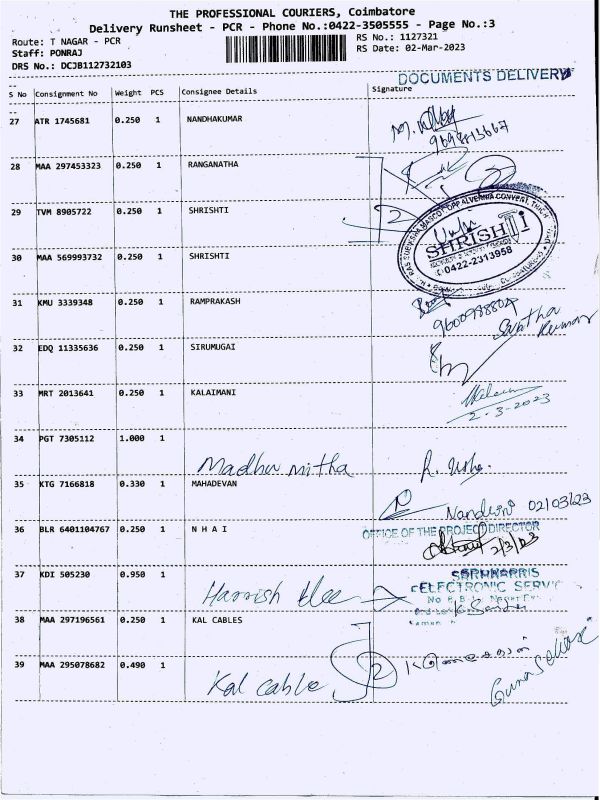 THE PROFESSIONAL COURIERS, Coimbatore
Delivery Runsheet - PCR - Phone No.:0422-3505555 - Page No.:3
Route: T NAGAR - PCR RS No.: 1127321
Staff: PONRAJ RS Date: 02-Mar-2023
DRS No.: DCJB112732103
DOCUMENTS DELIVERY
S No Consignment No Weight PCS Consignee Details Signature
27 ATR 1745681 0.250 1 NANDHAKUMAR
28 MAA 297453323 0.250 1 RANGANATHA
29 TVM 8905722 0.250 1 SHRISHTI
SHRISHTI
30 MAA 569993732 0.250 1 SHRISHTI
0422-2313958
31 KMU 3339348 0.250 1 RAMPRAKASH
32 EDQ 11335636 0.250 1 SIRUMUGAI
33 MRT 2013641 0.250 1 KALAIMANI
2-3-2023
34 PGT 7305112 1.000 1
Madhu mitha R. Usha.
35 KTG 7166818 0.330 1 MAHADEVAN
Nandini 02/03/23
36 BLR 6401104767 0.250 1 N H A I
OFFICE OF THE PROJECT DIRECTOR
2/3/23
37 KDI 505230 0.950 1
Harrish Elec
ELECTRONIC SERVIC
38 MAA 297196561 0.250 1 KAL CABLES
39 MAA 295078682 0.490 1
Kal cable